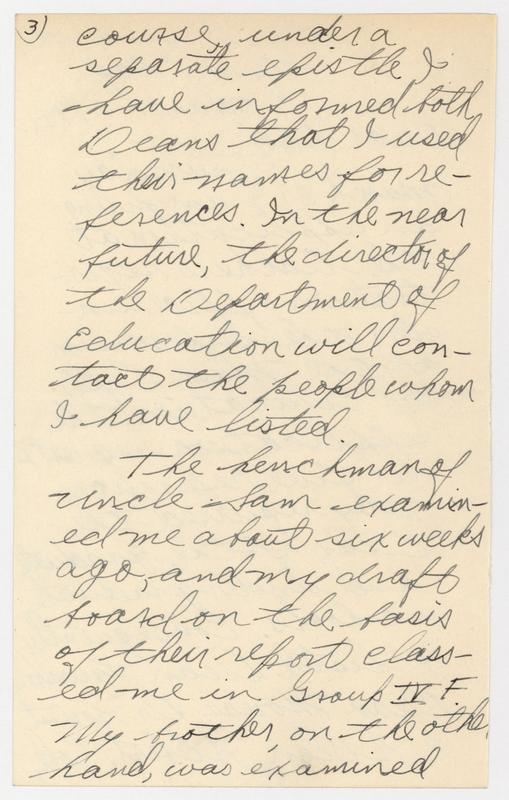 3)
course, under a
separate epistle, I
have informed both
Deans that I used
their names for re-
ferences. In the near
future, the director of
the Department of
Education will con-
tact the people whom
I have listed.
The henchman of
Uncle Sam examin-
ed me about six weeks
ago, and my draft
board on the basis
of their report class-
ed me in Group IV F.
My brother, on the other
hand, was examined